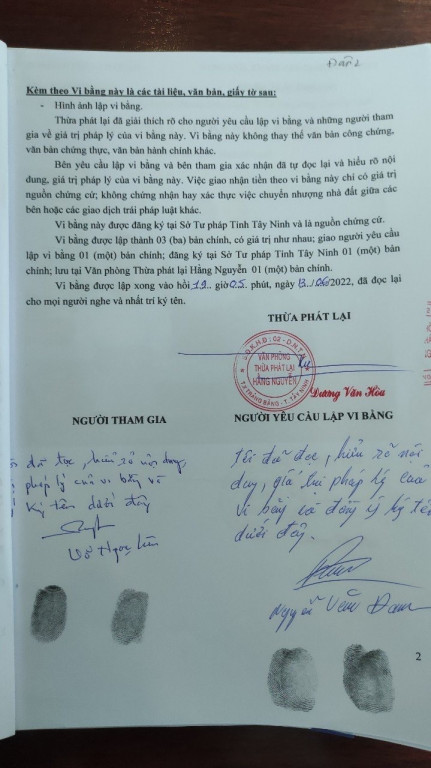 Kèm theo Vi bằng này là các tài liệu, văn bản, giấy tờ sau:
- Hình ảnh lập vi bằng.
Thừa phát lại đã giải thích rõ cho người yêu cầu lập vi bằng và những người tham
gia về giá trị pháp lý của vi bằng này. Vi bằng này không thay thế văn bản công chứng,
văn bản chứng thực, văn bản hành chính khác.
Bên yêu cầu lập vi bằng và bên tham gia xác nhận đã tự đọc lại và hiểu rõ nội
dung, giá trị pháp lý của vi bằng này. Việc giao nhận tiền theo vi bằng này chỉ có giá trị
nguồn chứng cứ; không chứng nhận hay xác thực việc chuyển nhượng nhà đất giữa các
bên hoặc các giao dịch trái pháp luật khác.
Vi bằng này được đăng ký tại Sở Tư pháp Tỉnh Tây Ninh và là nguồn chứng cứ.
Vi bằng được lập thành 03 (ba) bản chính, có giá trị như nhau; giao người yêu cầu
lập vi bằng 01 (một) bản chính; đăng ký tại Sở Tư pháp Tỉnh Tây Ninh 01 (một) bản
chính; lưu tại Văn phòng Thừa phát lại Hằng Nguyễn 01 (một) bản chính.
Vi bằng được lập xong vào hồi giờ 05 phút, ngày 13/06/2022, đã đọc lại
cho mọi người nghe và nhất trí ký tên.
THỪA PHÁT LẠI
VĂN PHÒNG
THỪA PHÁT LẠI
HẰNG NGUYỄN
TX TRẢNG BÀNG - T. TÂY NINH
Dương Văn Hòa
NGƯỜI THAM GIA
NGƯỜI YÊU CẦU LẬP VI BẰNG
đã đọc, hiểu rõ nội dung,
pháp lý của vi bằng và
ký tên dưới đây
Võ Ngọc
Tôi đã đọc, hiểu rõ nội
dung, giá trị pháp lý của
vi bằng và đồng ý ký tê
dưới đây.
Nguyễn Văn Đam
2